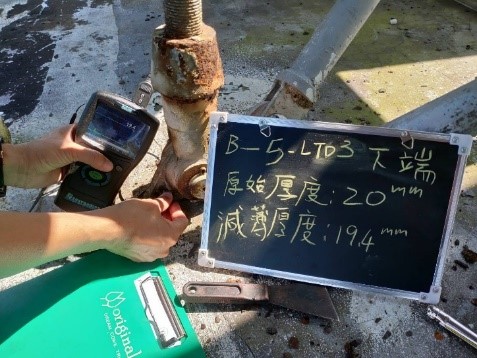 B-5-LTD3 下端
原始厚度:20mm
減薄厚度:19.4mm
original